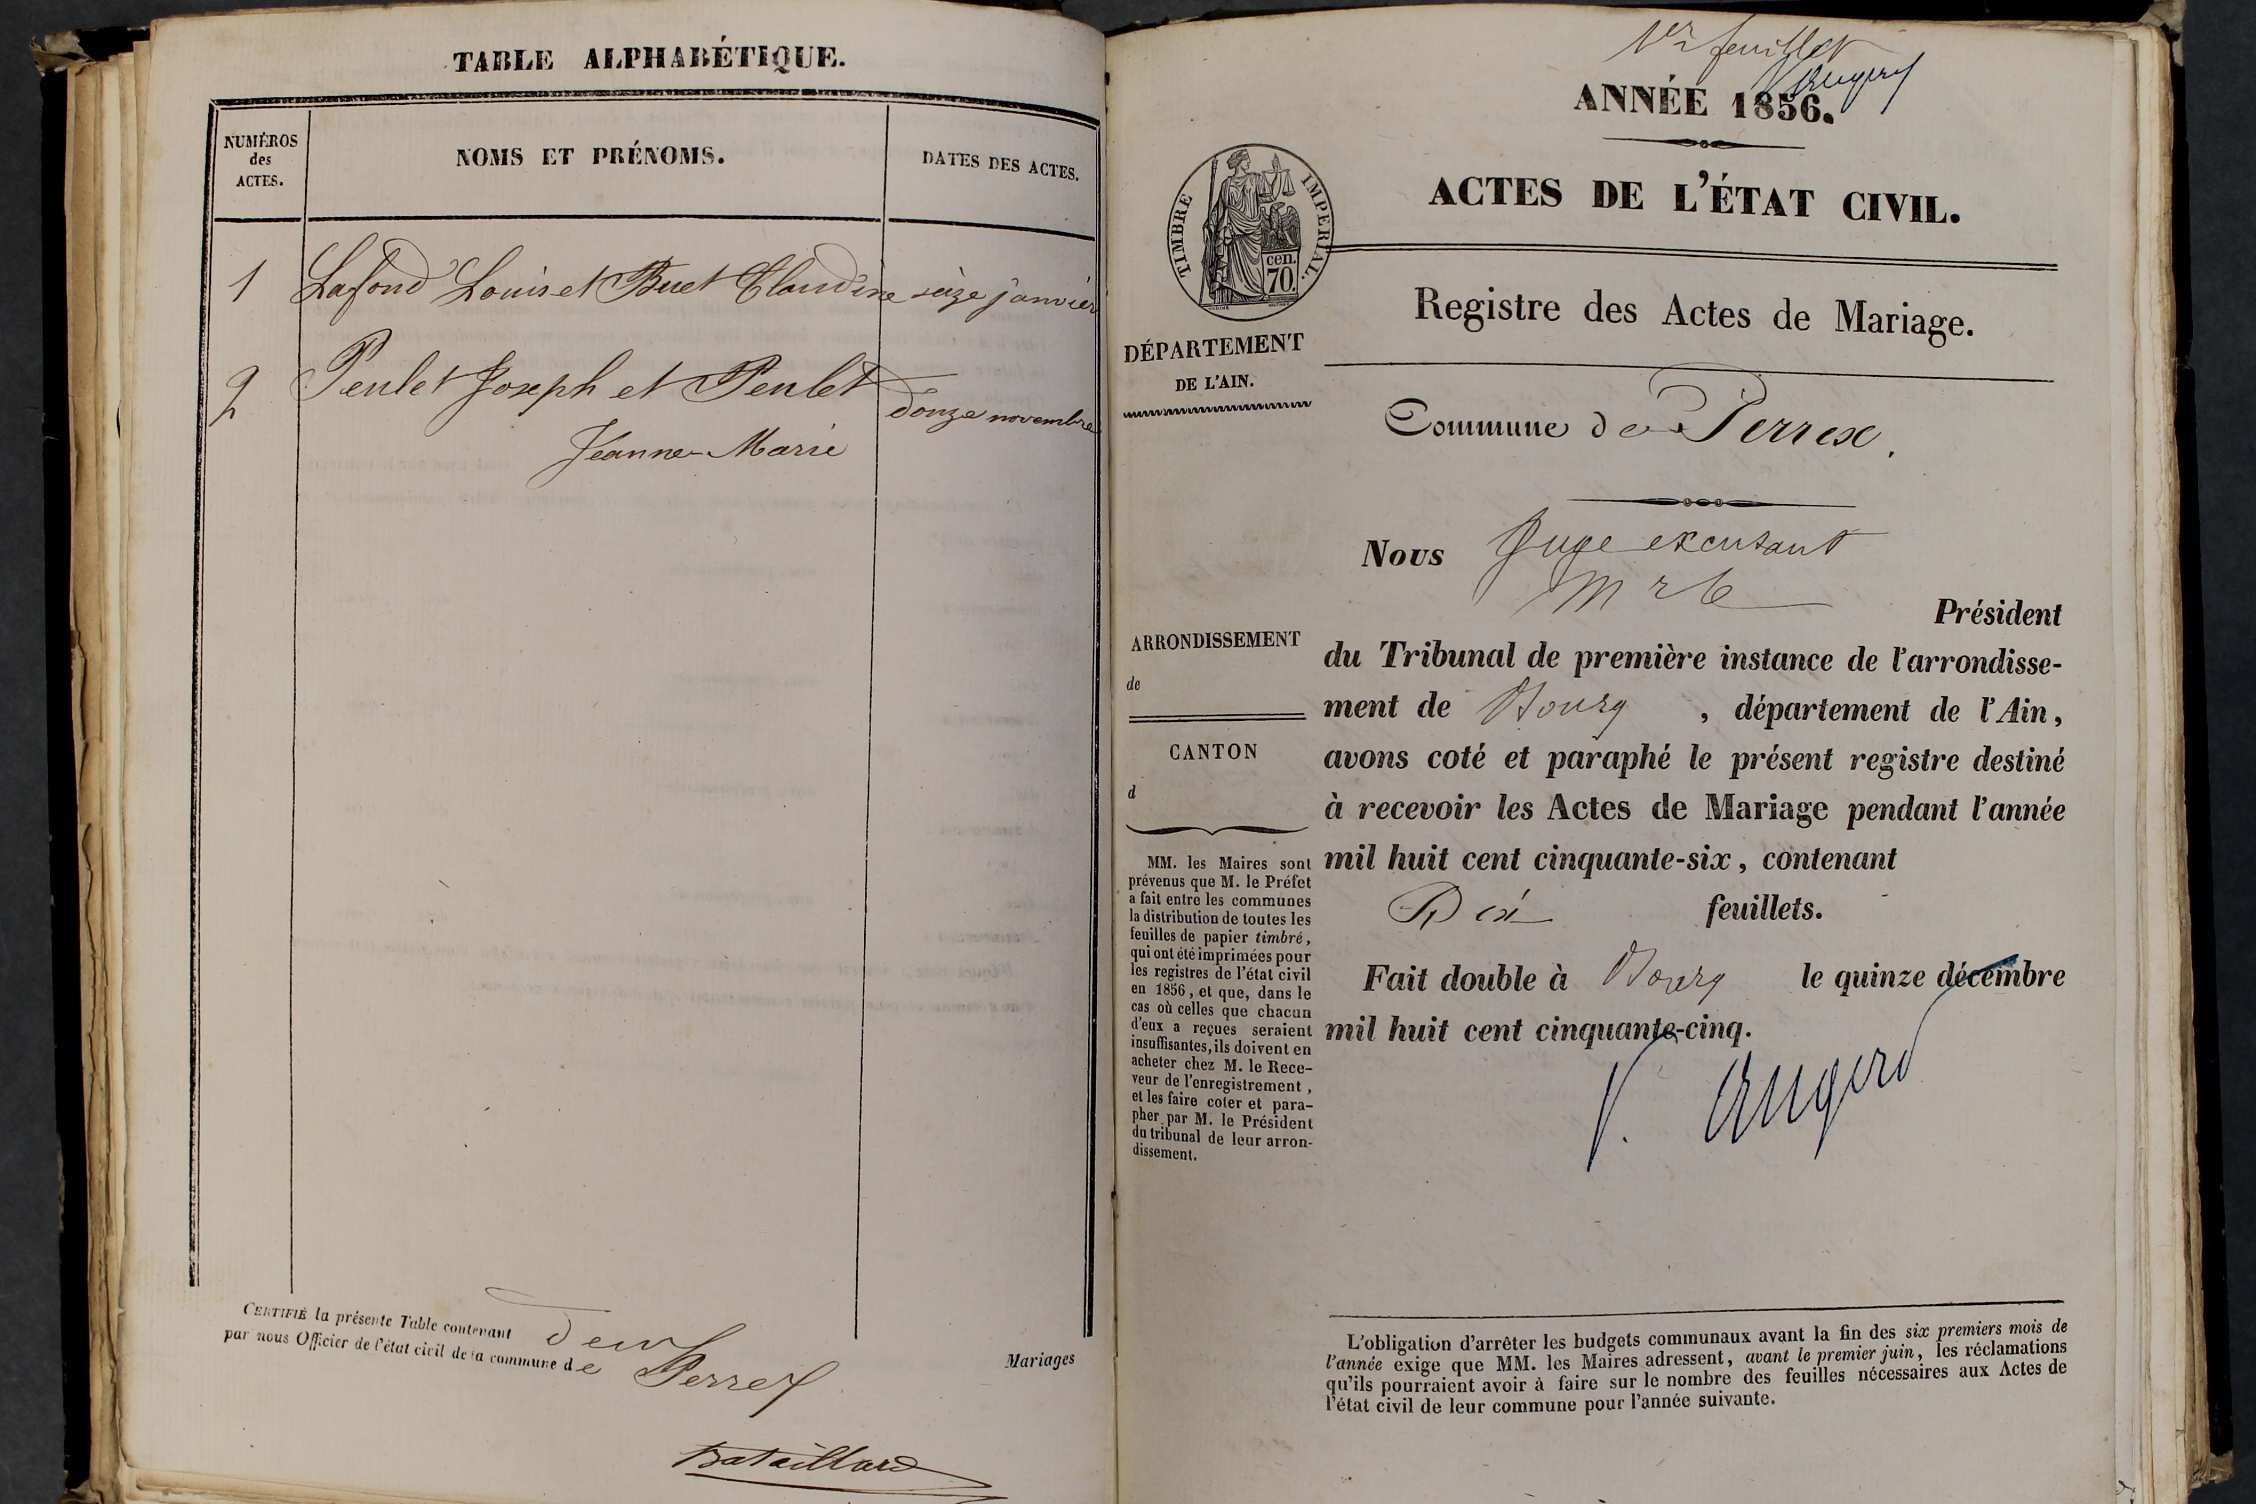 TABLE ALPHABÉTIQUE.
NUMÉROS
des
ACTES.
NOMS ET PRÉNOMS.
DATES DES ACTES.
1 Lafond Louis et Buet Claudine seize janvier
2 Penlet Joseph et Penlet douze novembre
Jeanne-Marie
CERTIFIÉ la présente Table contenant deux
Mariages
par nous Officier de l'état civil de la commune de Perrex
Bataillard
1er feuillet
ANNÉE 1856.
ACTES DE L'ÉTAT CIVIL.
TIMBRE IMPERIAL.
cen.
70.
Registre des Actes de Mariage.
DÉPARTEMENT
DE L'AIN.
Commune de Perrex.
Nous Juge
Président
ARRONDISSEMENT
de
CANTON
d
du Tribunal de première instance de l'arrondisse-
ment de Bourg , département de l'Ain,
avons coté et paraphé le présent registre destiné
à recevoir les Actes de Mariage pendant l'année
mil huit cent cinquante-six, contenant
Dix feuillets.
Fait double à Bourg le quinze décembre
mil huit cent cinquante-cinq.
MM. les Maires sont
prévenus que M. le Préfet
a fait entre les communes
la distribution de toutes les
feuilles de papier timbré,
qui ont été imprimées pour
les registres de l'état civil
en 1856, et que, dans le
cas où celles que chacun
d'eux a reçues seraient
insuffisantes, ils doivent en
acheter chez M. le Rece-
veur de l'enregistrement,
et les faire coter et para-
pher par M. le Président
du tribunal de leur arron-
dissement.
L'obligation d'arrêter les budgets communaux avant la fin des six premiers mois de
l'année exige que MM. les Maires adressent, avant le premier juin, les réclamations
qu'ils pourraient avoir à faire sur le nombre des feuilles nécessaires aux Actes de
l'état civil de leur commune pour l'année suivante.